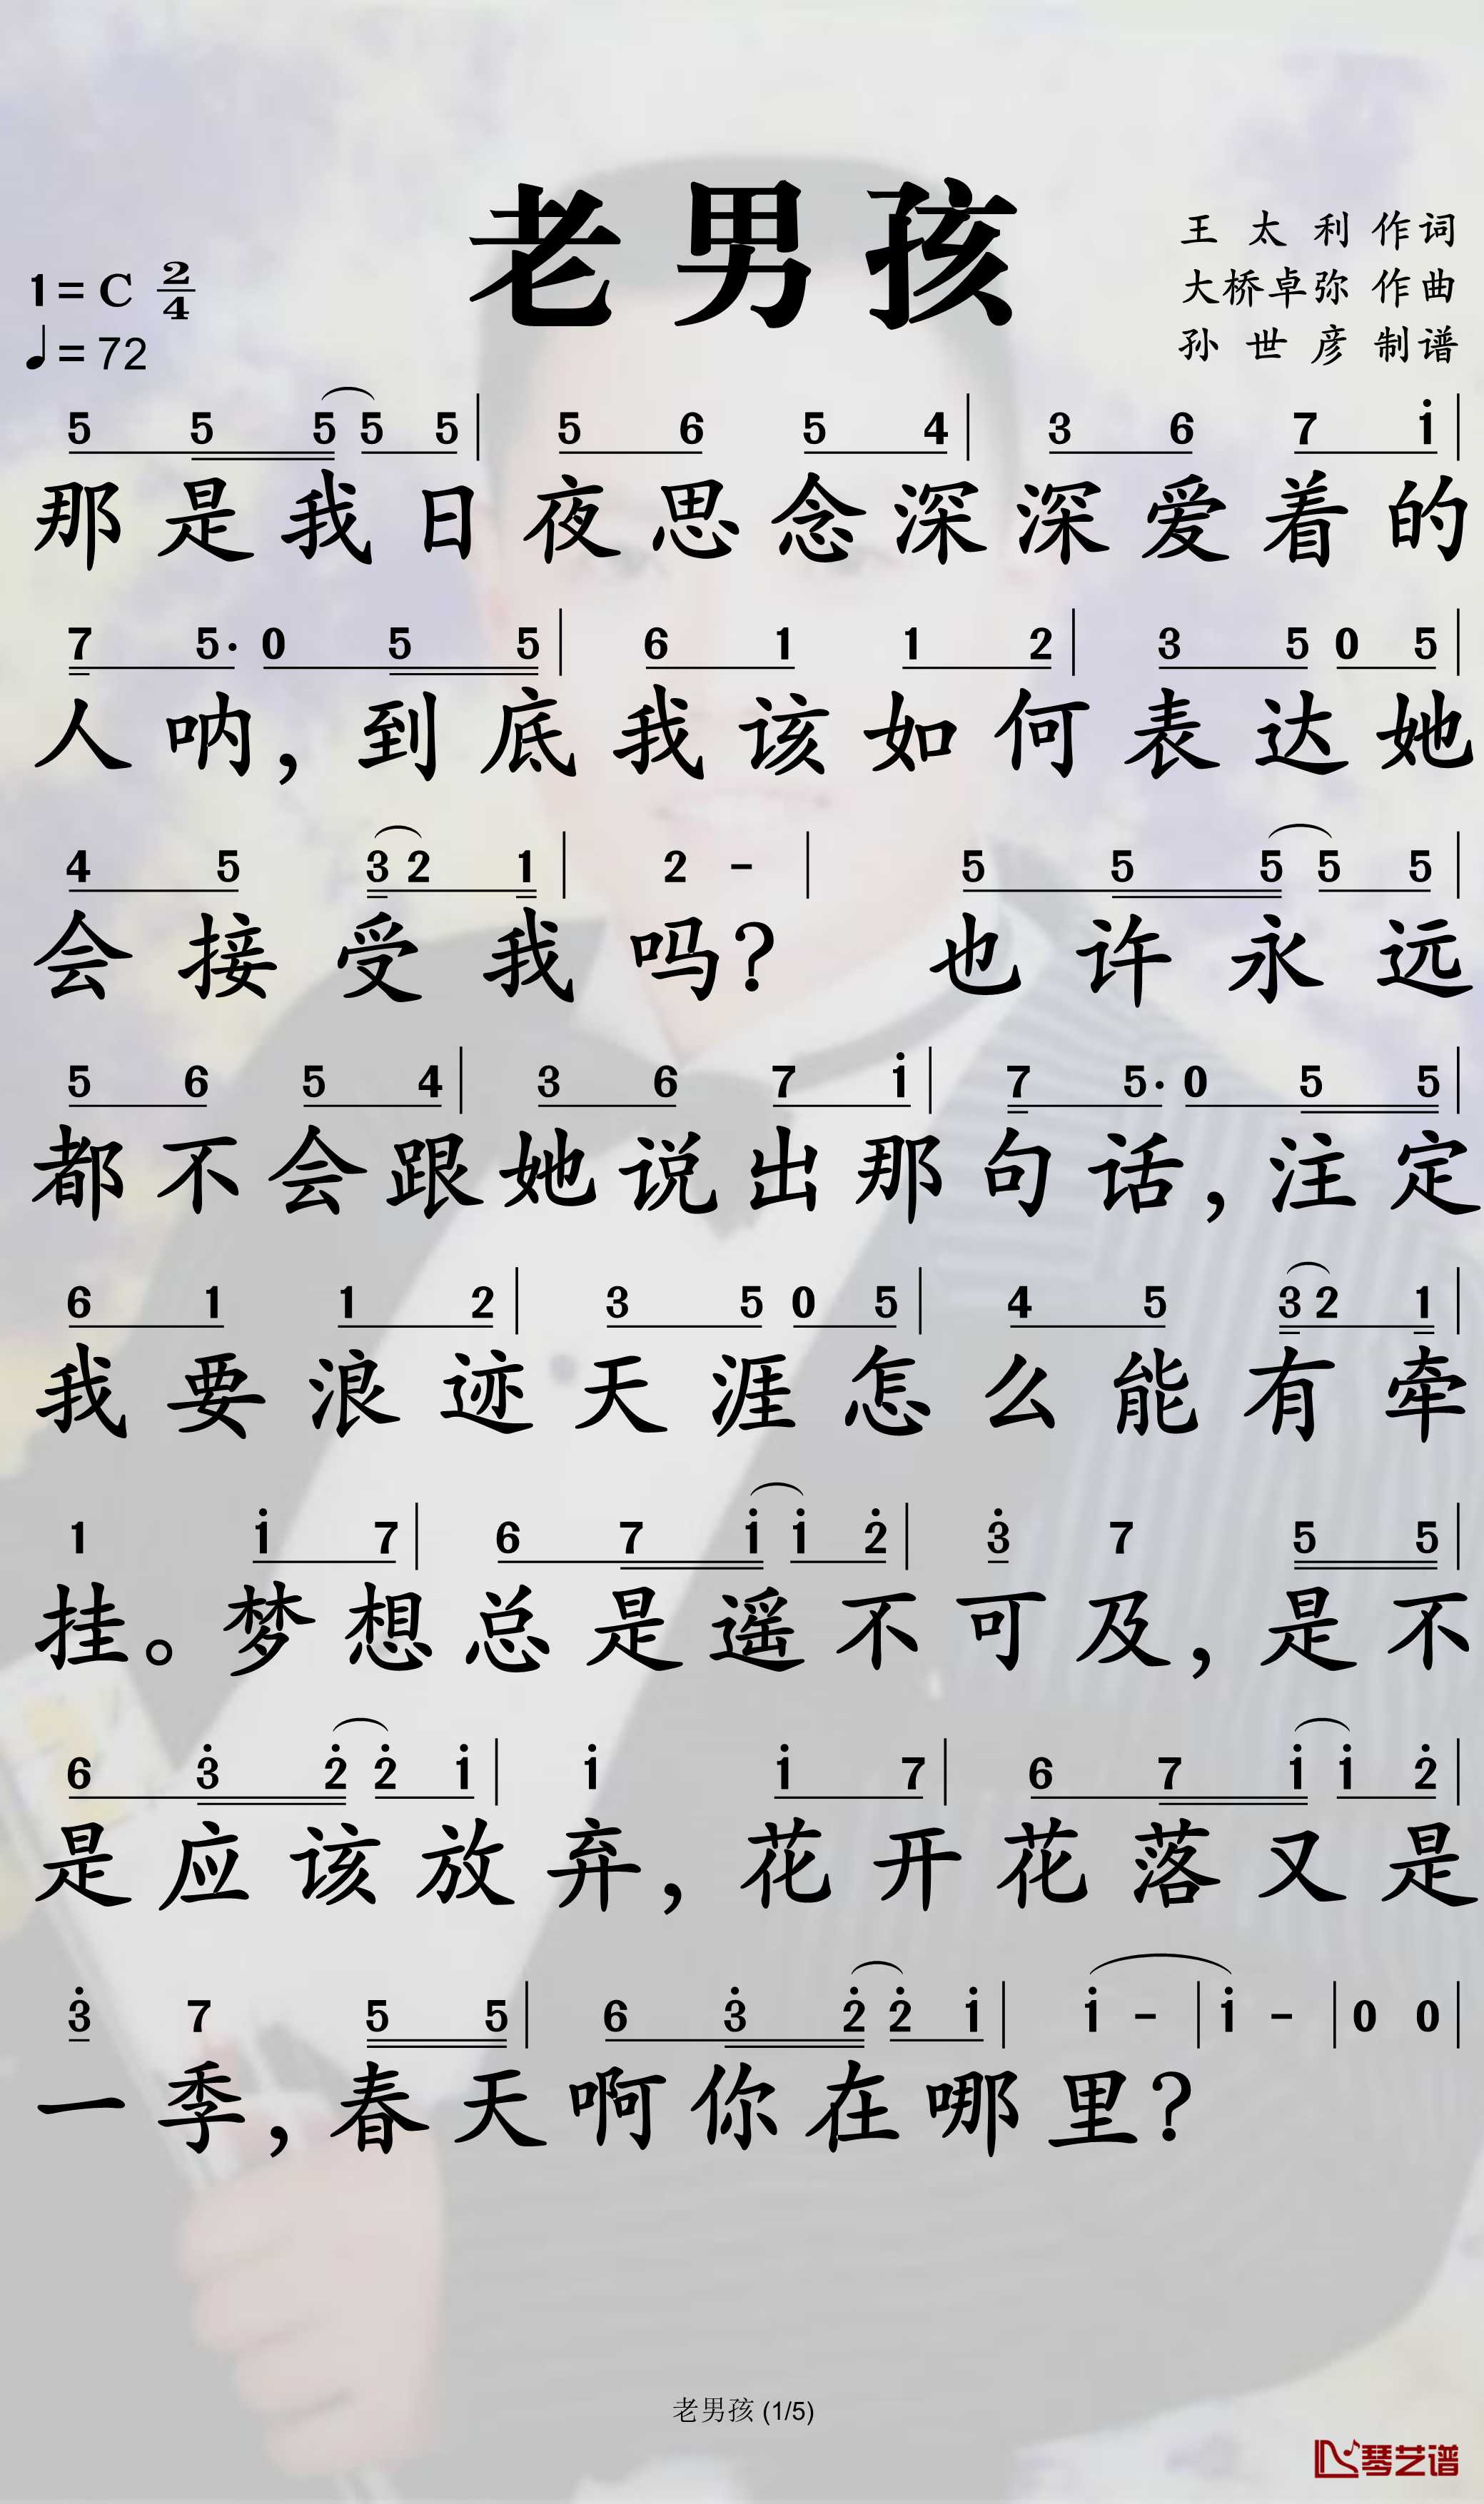 老男孩
王太利 作词
1=C 2/4
大桥卓弥 作曲
♩=72
孙世彦 制谱
5 5 5 5 5 | 5 6 5 4 | 3 6 7 i |
那是我日夜思念深深爱着的
7 5· 0 5 5 | 6 1 1 2 | 3 5 0 5 |
人呐，到底我该如何表达她
4 5 3 2 1 | 2 - | 5 5 5 5 5 |
会接受我吗？ 也许永远
5 6 5 4 | 3 6 7 i | 7 5· 0 5 5 |
都不会跟她说出那句话，注定
6 1 1 2 | 3 5 0 5 | 4 5 3 2 1 |
我要浪迹天涯怎么能有牵
1 i 7 | 6 7 i i 2̇ | 3̇ 7 5 5 |
挂。梦想总是遥不可及，是不
6 3̇ 2̇ 2̇ i | i i 7 | 6 7 i i 2̇ |
是应该放弃，花开花落又是
3̇ 7 5 5 | 6 3̇ 2̇ 2̇ i | i - | i - | 0 0 |
一季，春天啊你在哪里？
老男孩 (1/5)
琴艺谱